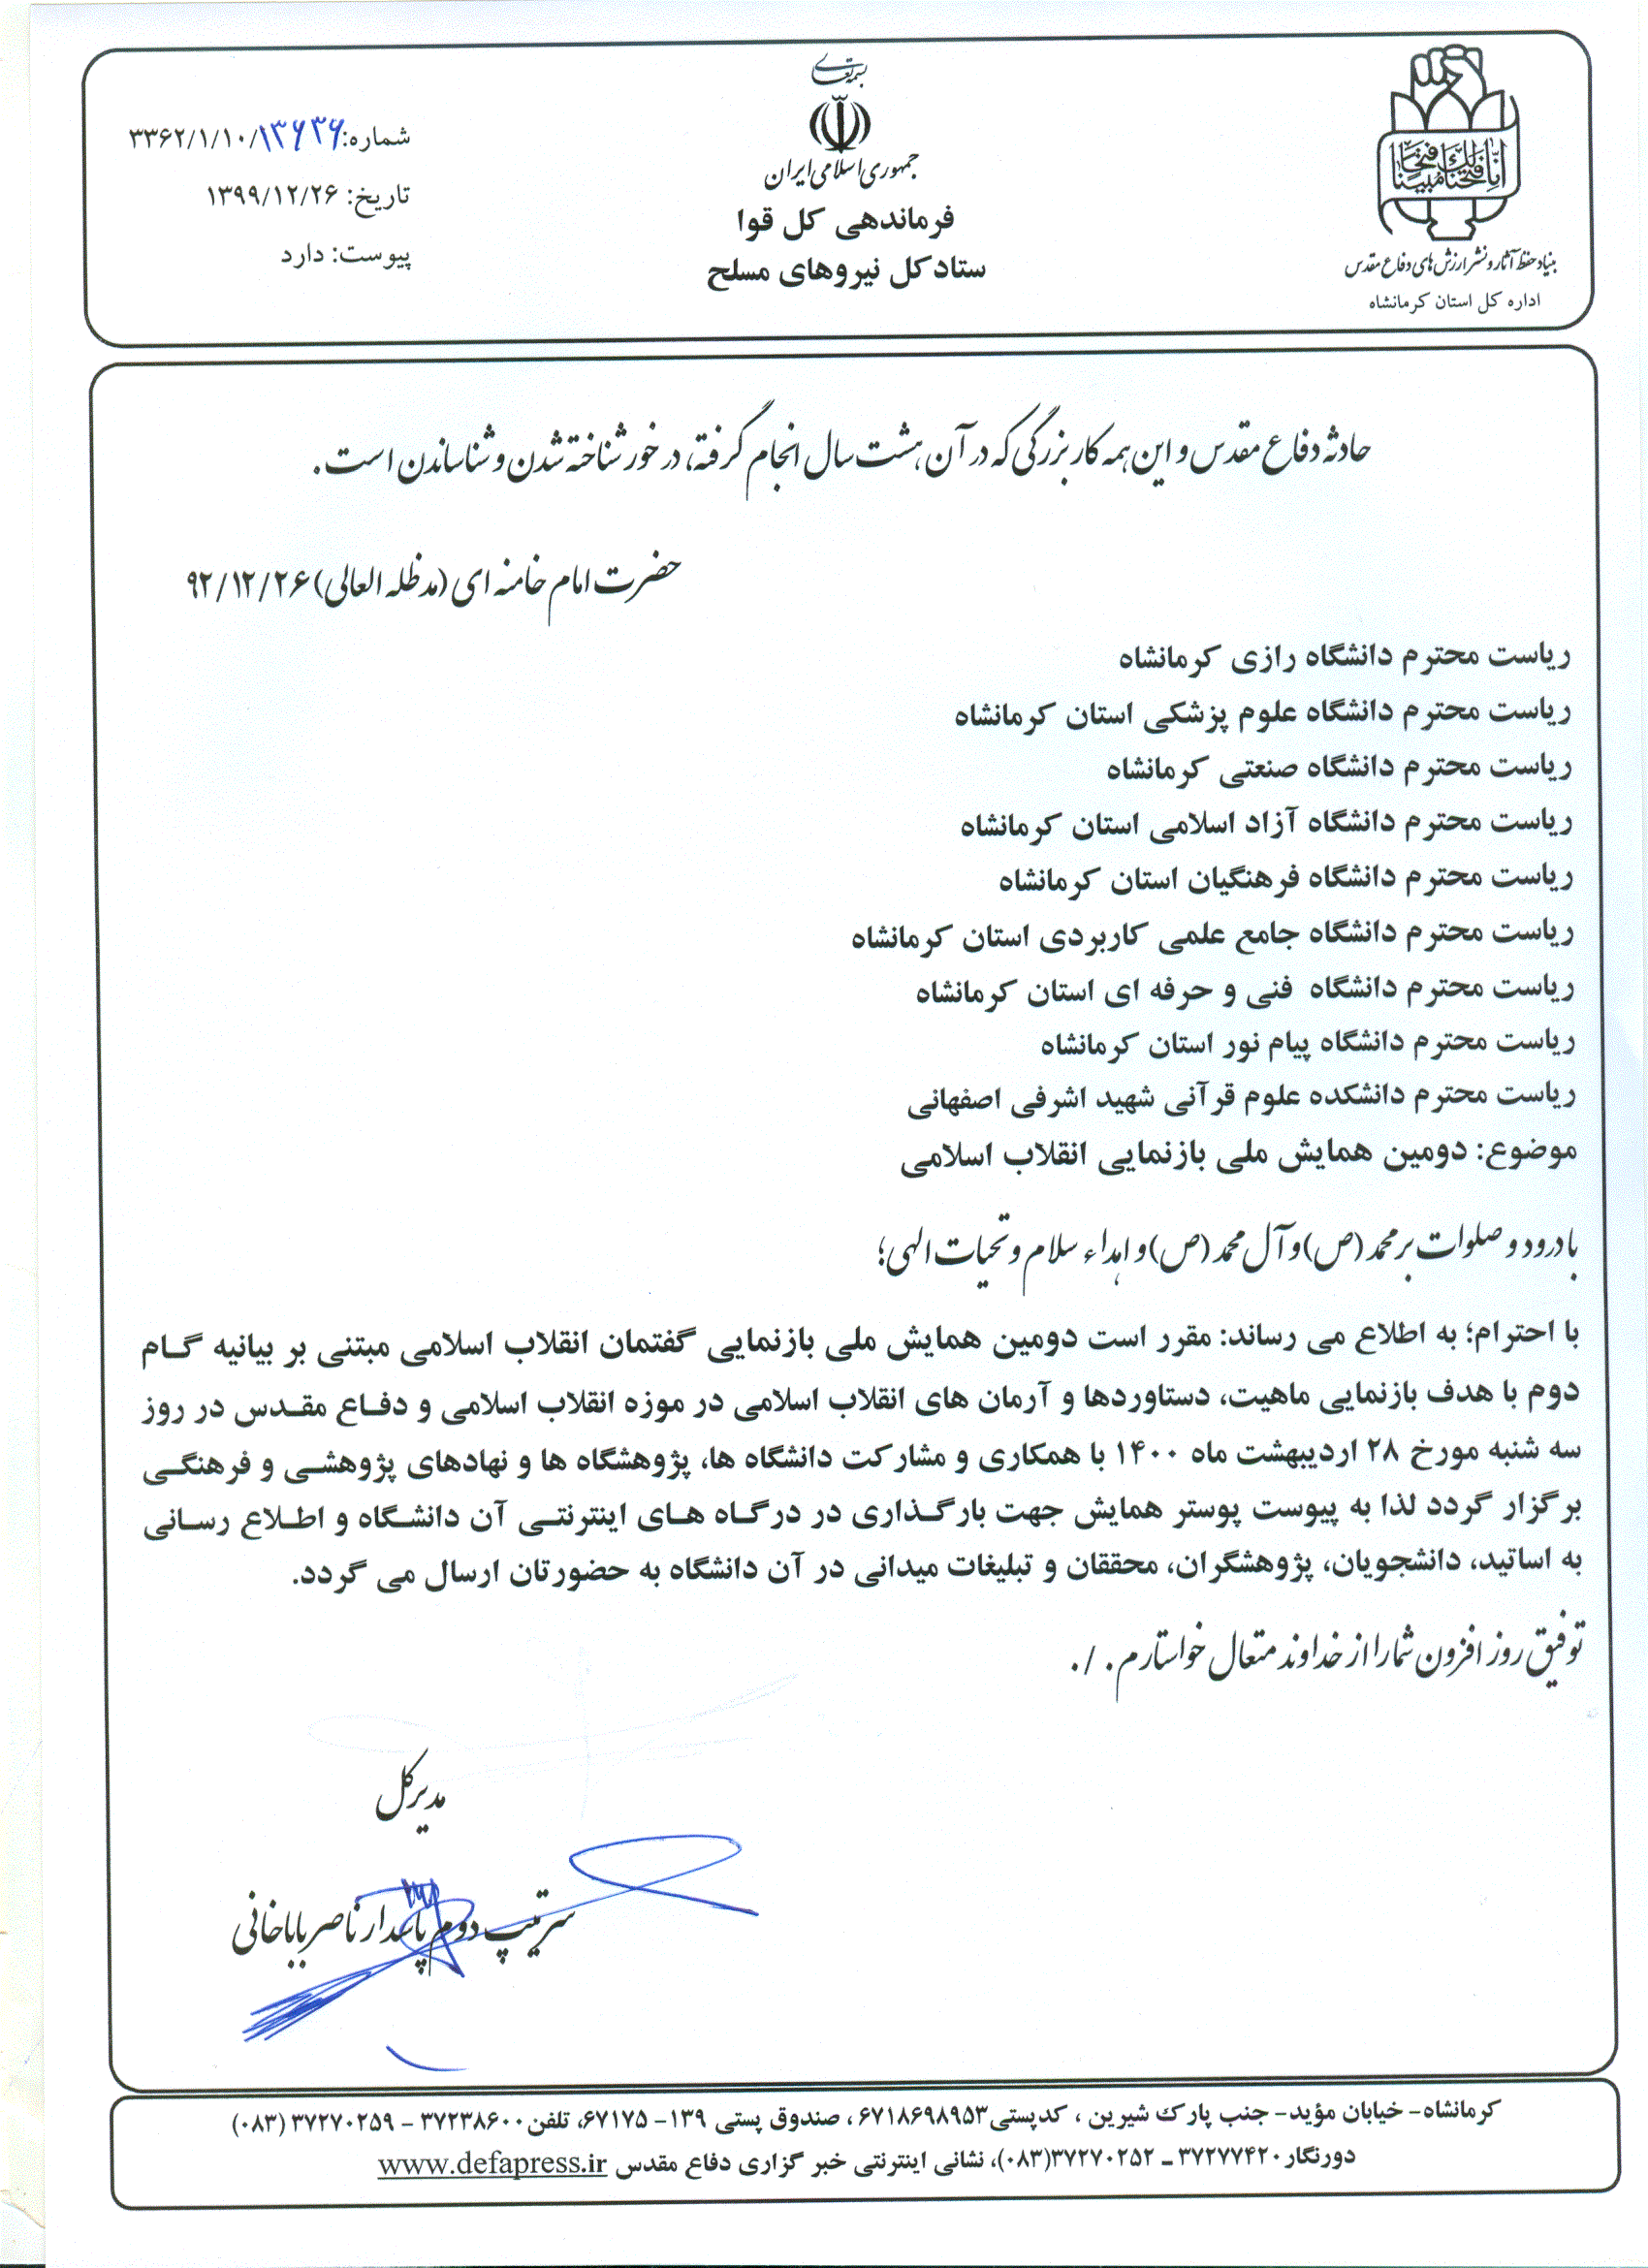 بسمه تعالی
جمهوری اسلامی ایران
فرماندهی کل قوا
ستاد کل نیروهای مسلح
إنا فتحنا لك فتحا مبينا
بنیاد حفظ آثار و نشر ارزش های دفاع مقدس
اداره کل استان کرمانشاه
شماره: ۳۳۶۲/۱/۱۰/۱۳۶۳۶
تاریخ: ۱۳۹۹/۱۲/۲۶
پیوست: دارد
حادثه دفاع مقدس و این همه کار بزرگی که در آن هشت سال انجام گرفته، در خور شناخته شدن و شناساندن است.
حضرت امام خامنه ای (مدظله العالی) ۹۲/۱۲/۲۶
ریاست محترم دانشگاه رازی کرمانشاه
ریاست محترم دانشگاه علوم پزشکی استان کرمانشاه
ریاست محترم دانشگاه صنعتی کرمانشاه
ریاست محترم دانشگاه آزاد اسلامی استان کرمانشاه
ریاست محترم دانشگاه فرهنگیان استان کرمانشاه
ریاست محترم دانشگاه جامع علمی کاربردی استان کرمانشاه
ریاست محترم دانشگاه فنی و حرفه ای استان کرمانشاه
ریاست محترم دانشگاه پیام نور استان کرمانشاه
ریاست محترم دانشکده علوم قرآنی شهید اشرفی اصفهانی
موضوع: دومین همایش ملی بازنمایی انقلاب اسلامی
با درود و صلوات بر محمد (ص) و آل محمد (ص) و اهداء سلام و تحیات الهی؛
با احترام؛ به اطلاع می رساند: مقرر است دومین همایش ملی بازنمایی گفتمان انقلاب اسلامی مبتنی بر بیانیه گام
دوم با هدف بازنمایی ماهیت، دستاوردها و آرمان های انقلاب اسلامی در موزه انقلاب اسلامی و دفاع مقدس در روز
سه شنبه مورخ ۲۸ اردیبهشت ماه ۱۴۰۰ با همکاری و مشارکت دانشگاه ها، پژوهشگاه ها و نهادهای پژوهشی و فرهنگی
برگزار گردد لذا به پیوست پوستر همایش جهت بارگذاری در درگاه های اینترنتی آن دانشگاه و اطلاع رسانی
به اساتید، دانشجویان، پژوهشگران، محققان و تبلیغات میدانی در آن دانشگاه به حضورتان ارسال می گردد.
توفیق روز افزون شما را از خداوند متعال خواستارم. /.
مدیرکل
سرتیپ دوم پاسدار ناصر باباخانی
کرمانشاه- خیابان مؤید- جنب پارک شیرین ، کدپستی ۶۷۱۸۶۹۸۹۵۳ ، صندوق پستی ۱۳۹- ۶۷۱۷۵، تلفن ۳۷۲۳۸۶۰۰ - ۳۷۲۷۰۲۵۹ (۰۸۳)
دورنگار ۳۷۲۷۷۴۲۰ ـ ۳۷۲۷۰۲۵۲(۰۸۳)، نشانی اینترنتی خبر گزاری دفاع مقدس www.defapress.ir